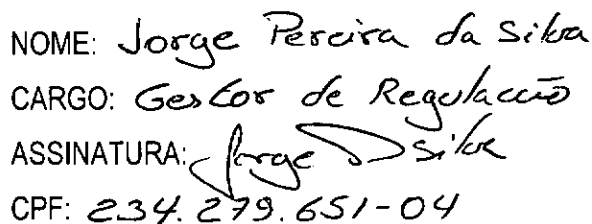 NOME: Jorge Pereira da Silva
CARGO: Gestor de Regulação
ASSINATURA: Jorge D Silva
CPF: 234.279.651-04